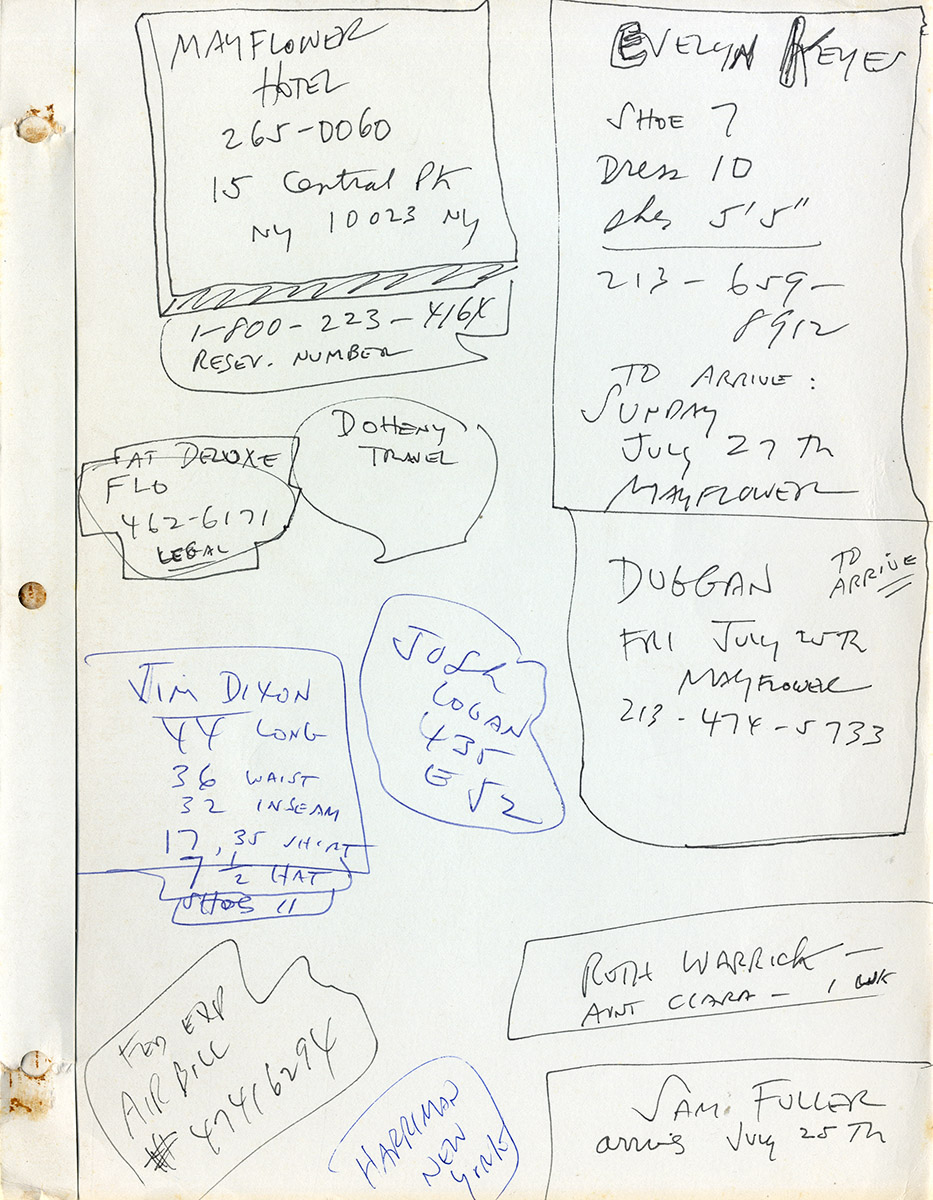 MAYFLOWER
HOTEL
265-0060
15 Central Pk
NY 10023 NY
1-800-223-416X
RESEV. NUMBER
EVELYN KEYES
SHOE 7
Dress 10
5'5"
213-659-
8912
TO ARRIVE:
SUNDAY
July 27th
MAYFLOWER
FAT DELUXE
FLO
462-6171
LEGAL
DOHENY
TRAVEL
DUGGAN TO
ARRIVE
FRI July 25th
MAYFLOWER
213-474-5733
JIM DIXON
44 LONG
36 WAIST
32 INSEAM
17, 35 SHIRT
7 1/2 HAT
SHOE 11
JOSH
LOGAN
435
E 52
RUTH WARRICK -
AUNT CLARA - 1 wk
FED EXP
AIR BILL
# 47416294
HARRIMAN
NEW
YORK
SAM FULLER
arrives July 25th